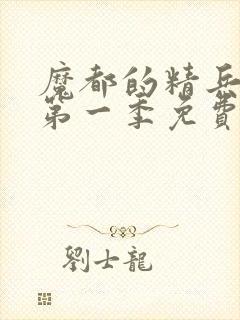 魔都的精兵
第一季免費
劉士龍